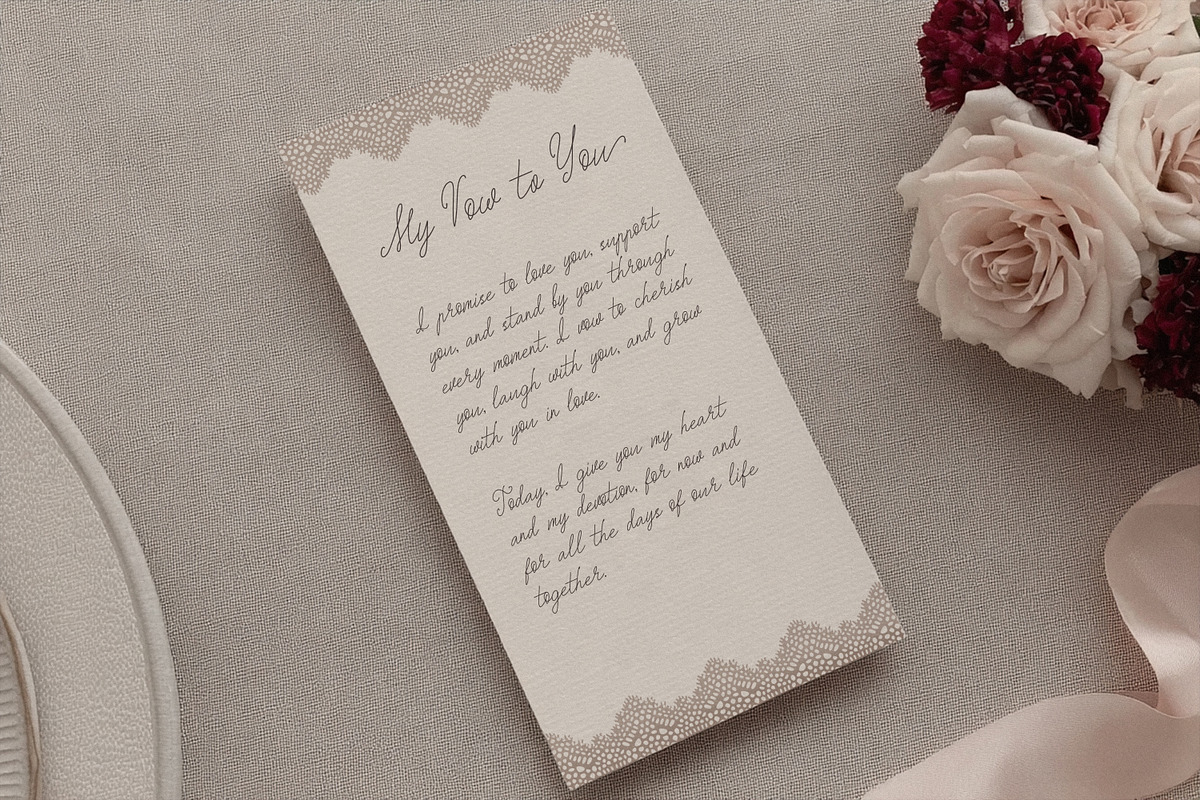 My Vow to You
I promise to love you, support
you, and stand by you through
every moment. I vow to cherish
you, laugh with you, and grow
with you in love.
Today, I give you my heart
and my devotion, for now and
for all the days of our life
together.